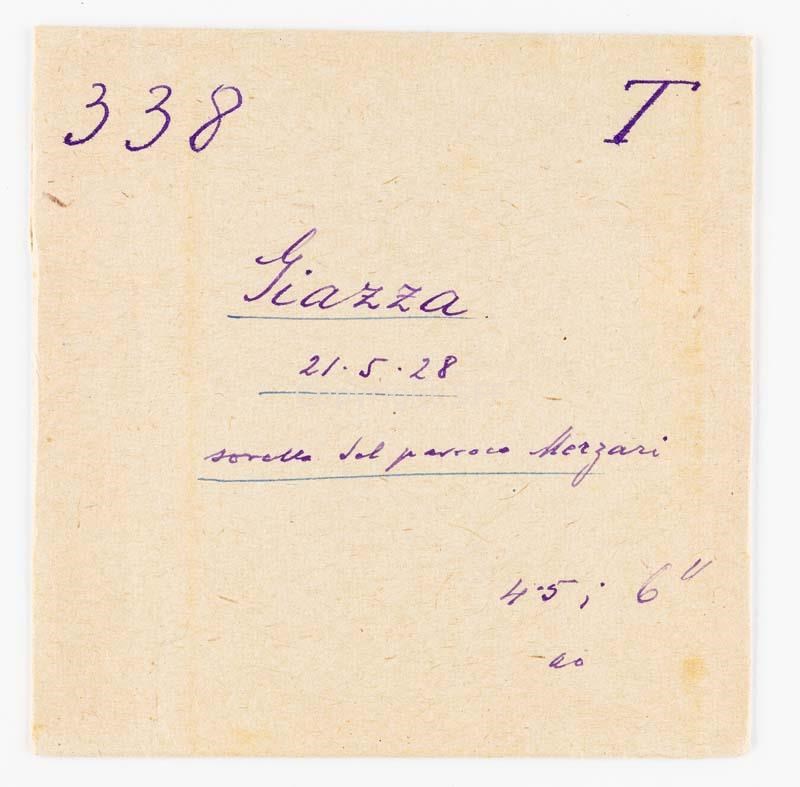 338 T
Giazza
21.5.28
sorella del parroco Merzari
4.5; 6"
ao